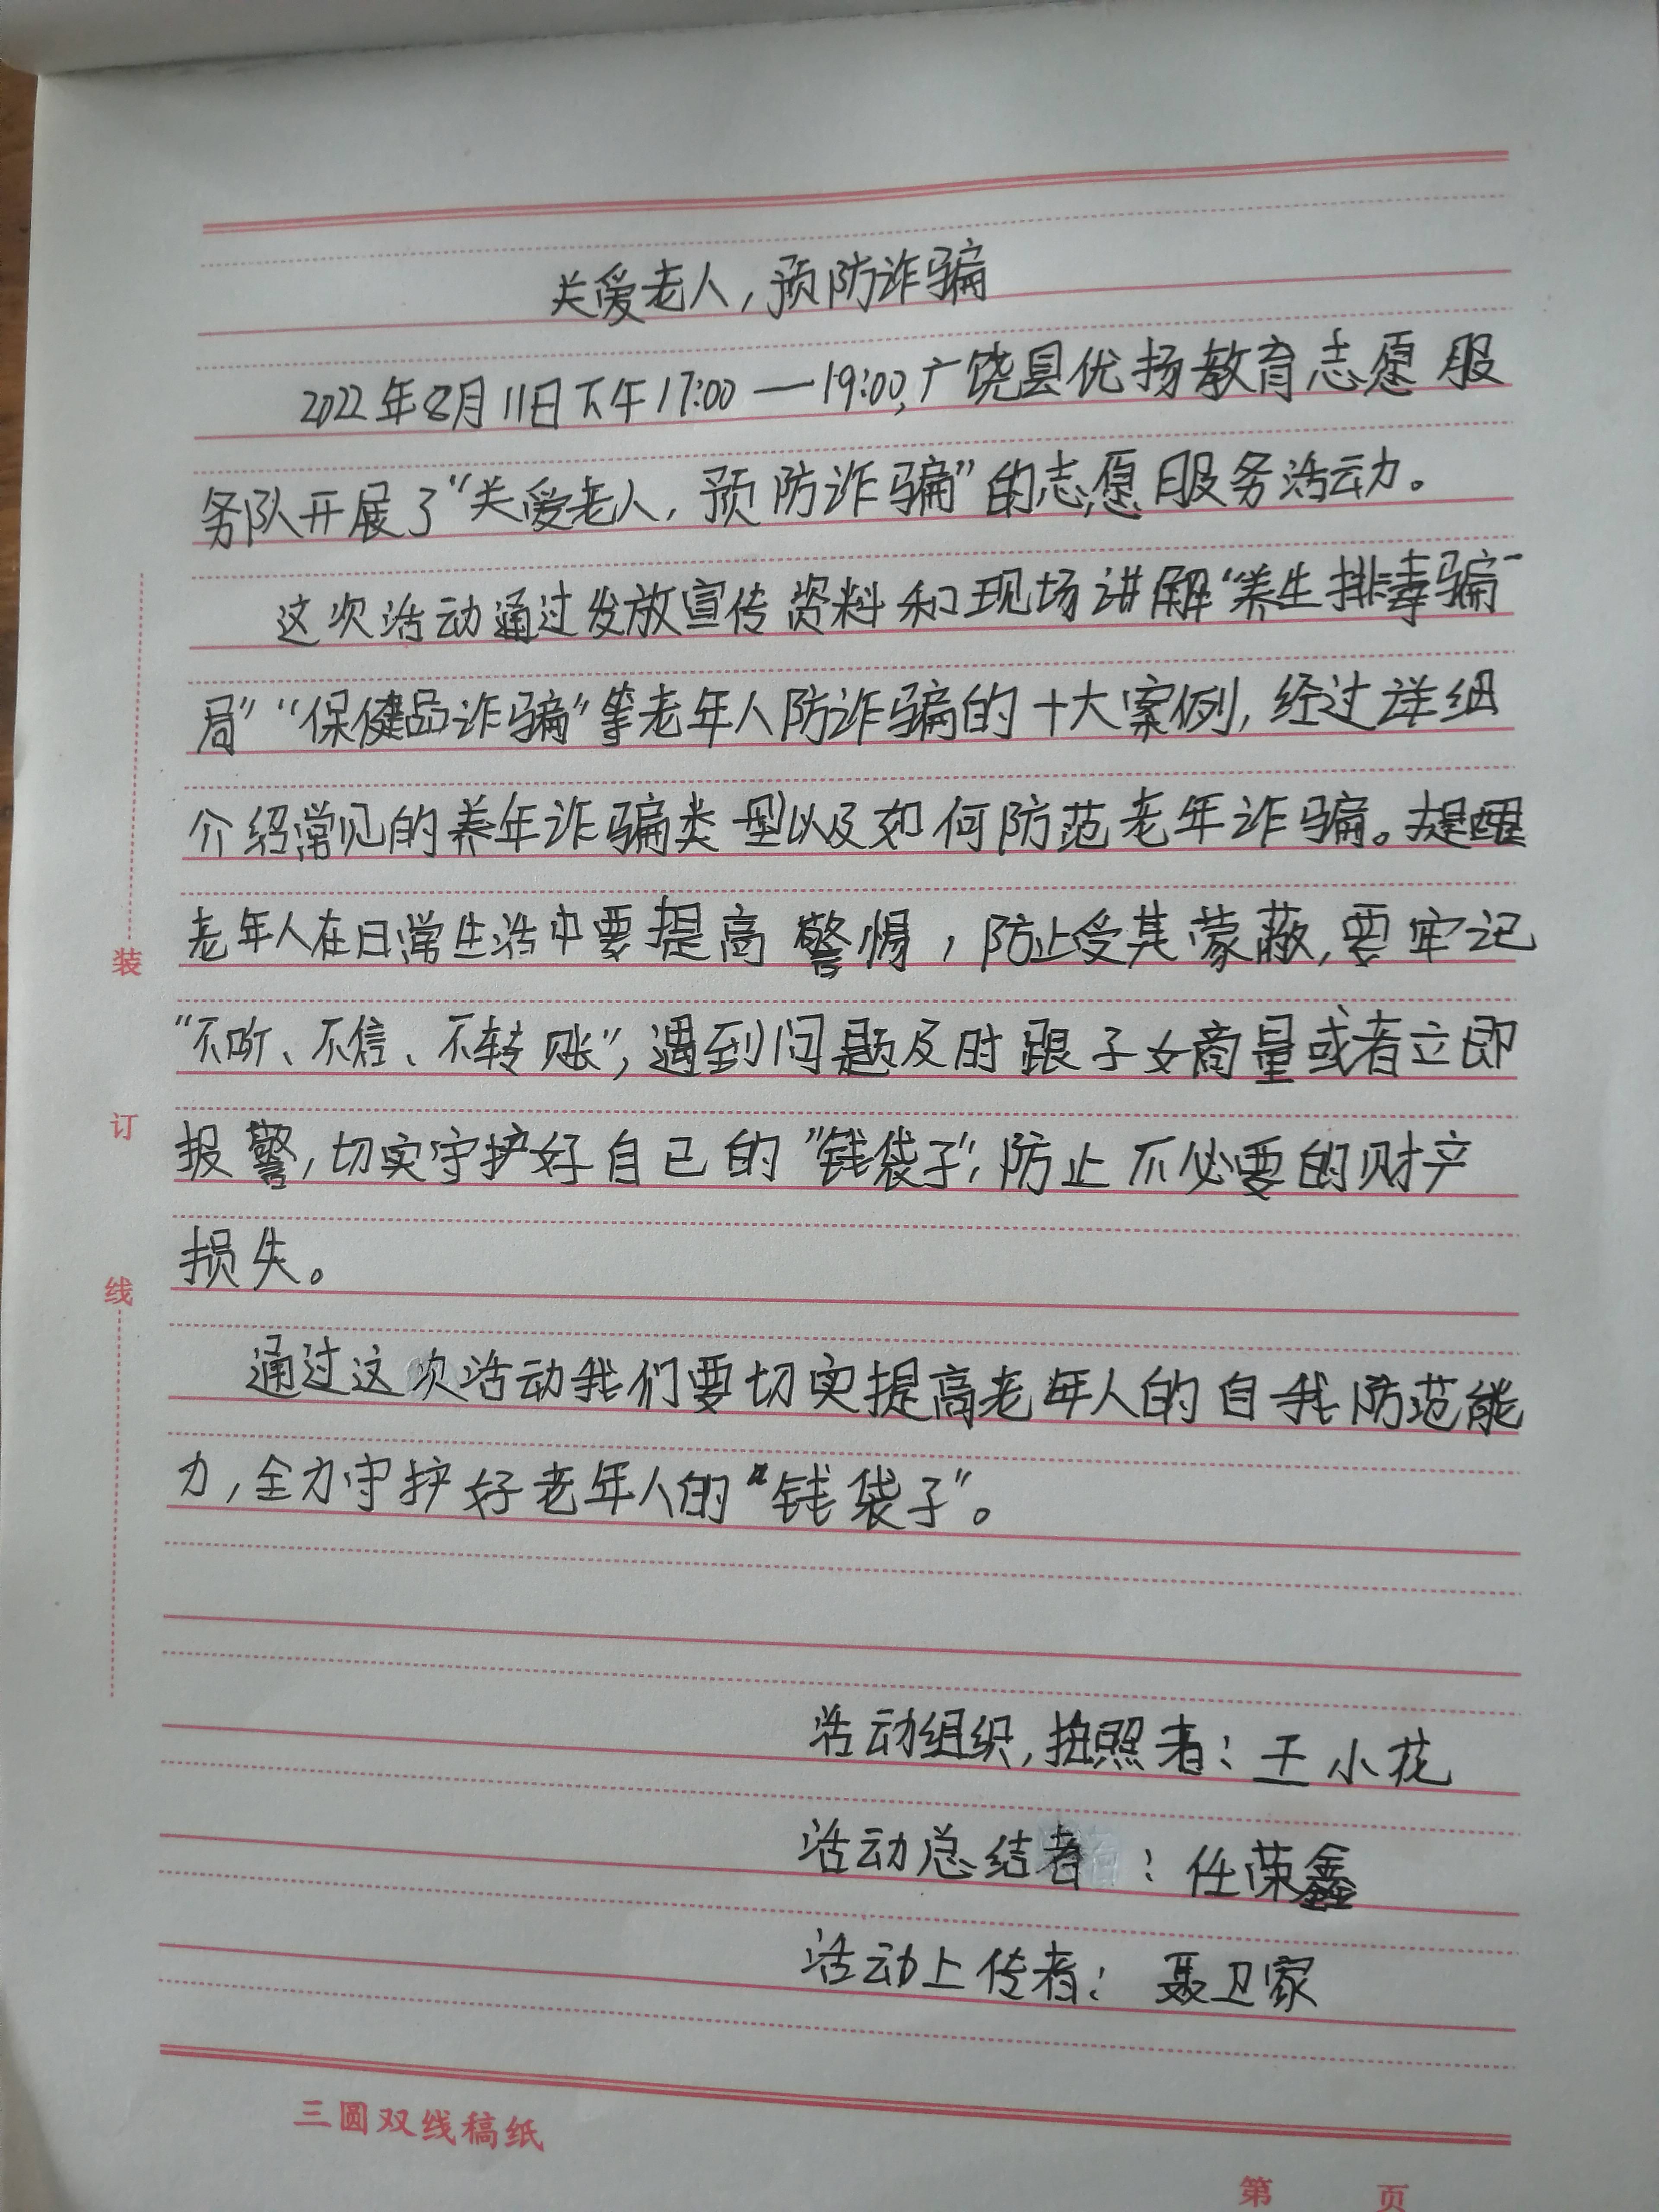 关爱老人，预防诈骗
2022年8月11日下午17:00—19:00,广饶县优扬教育志愿服
务队开展了“关爱老人，预防诈骗”的志愿服务活动。
这次活动通过发放宣传资料和现场讲解“养生排毒骗
局”“保健品诈骗”等老年人防诈骗的十大案例，经过详细
介绍常见的养年诈骗类型以及如何防范老年诈骗。提醒
老年人在日常生活中要提高警惕，防止受其蒙蔽，要牢记
“不听、不信、不转账”，遇到问题及时跟子女商量或者立即
报警，切实守护好自己的“钱袋子”，防止不必要的财产
损失。
通过这次活动我们要切实提高老年人的自我防范能
力，全力守护好老年人的“钱袋子”。
活动组织，拍照者：王小花
活动总结者：任荣鑫
活动上传者：聂卫家
装
订
线
三圆双线稿纸
第 页